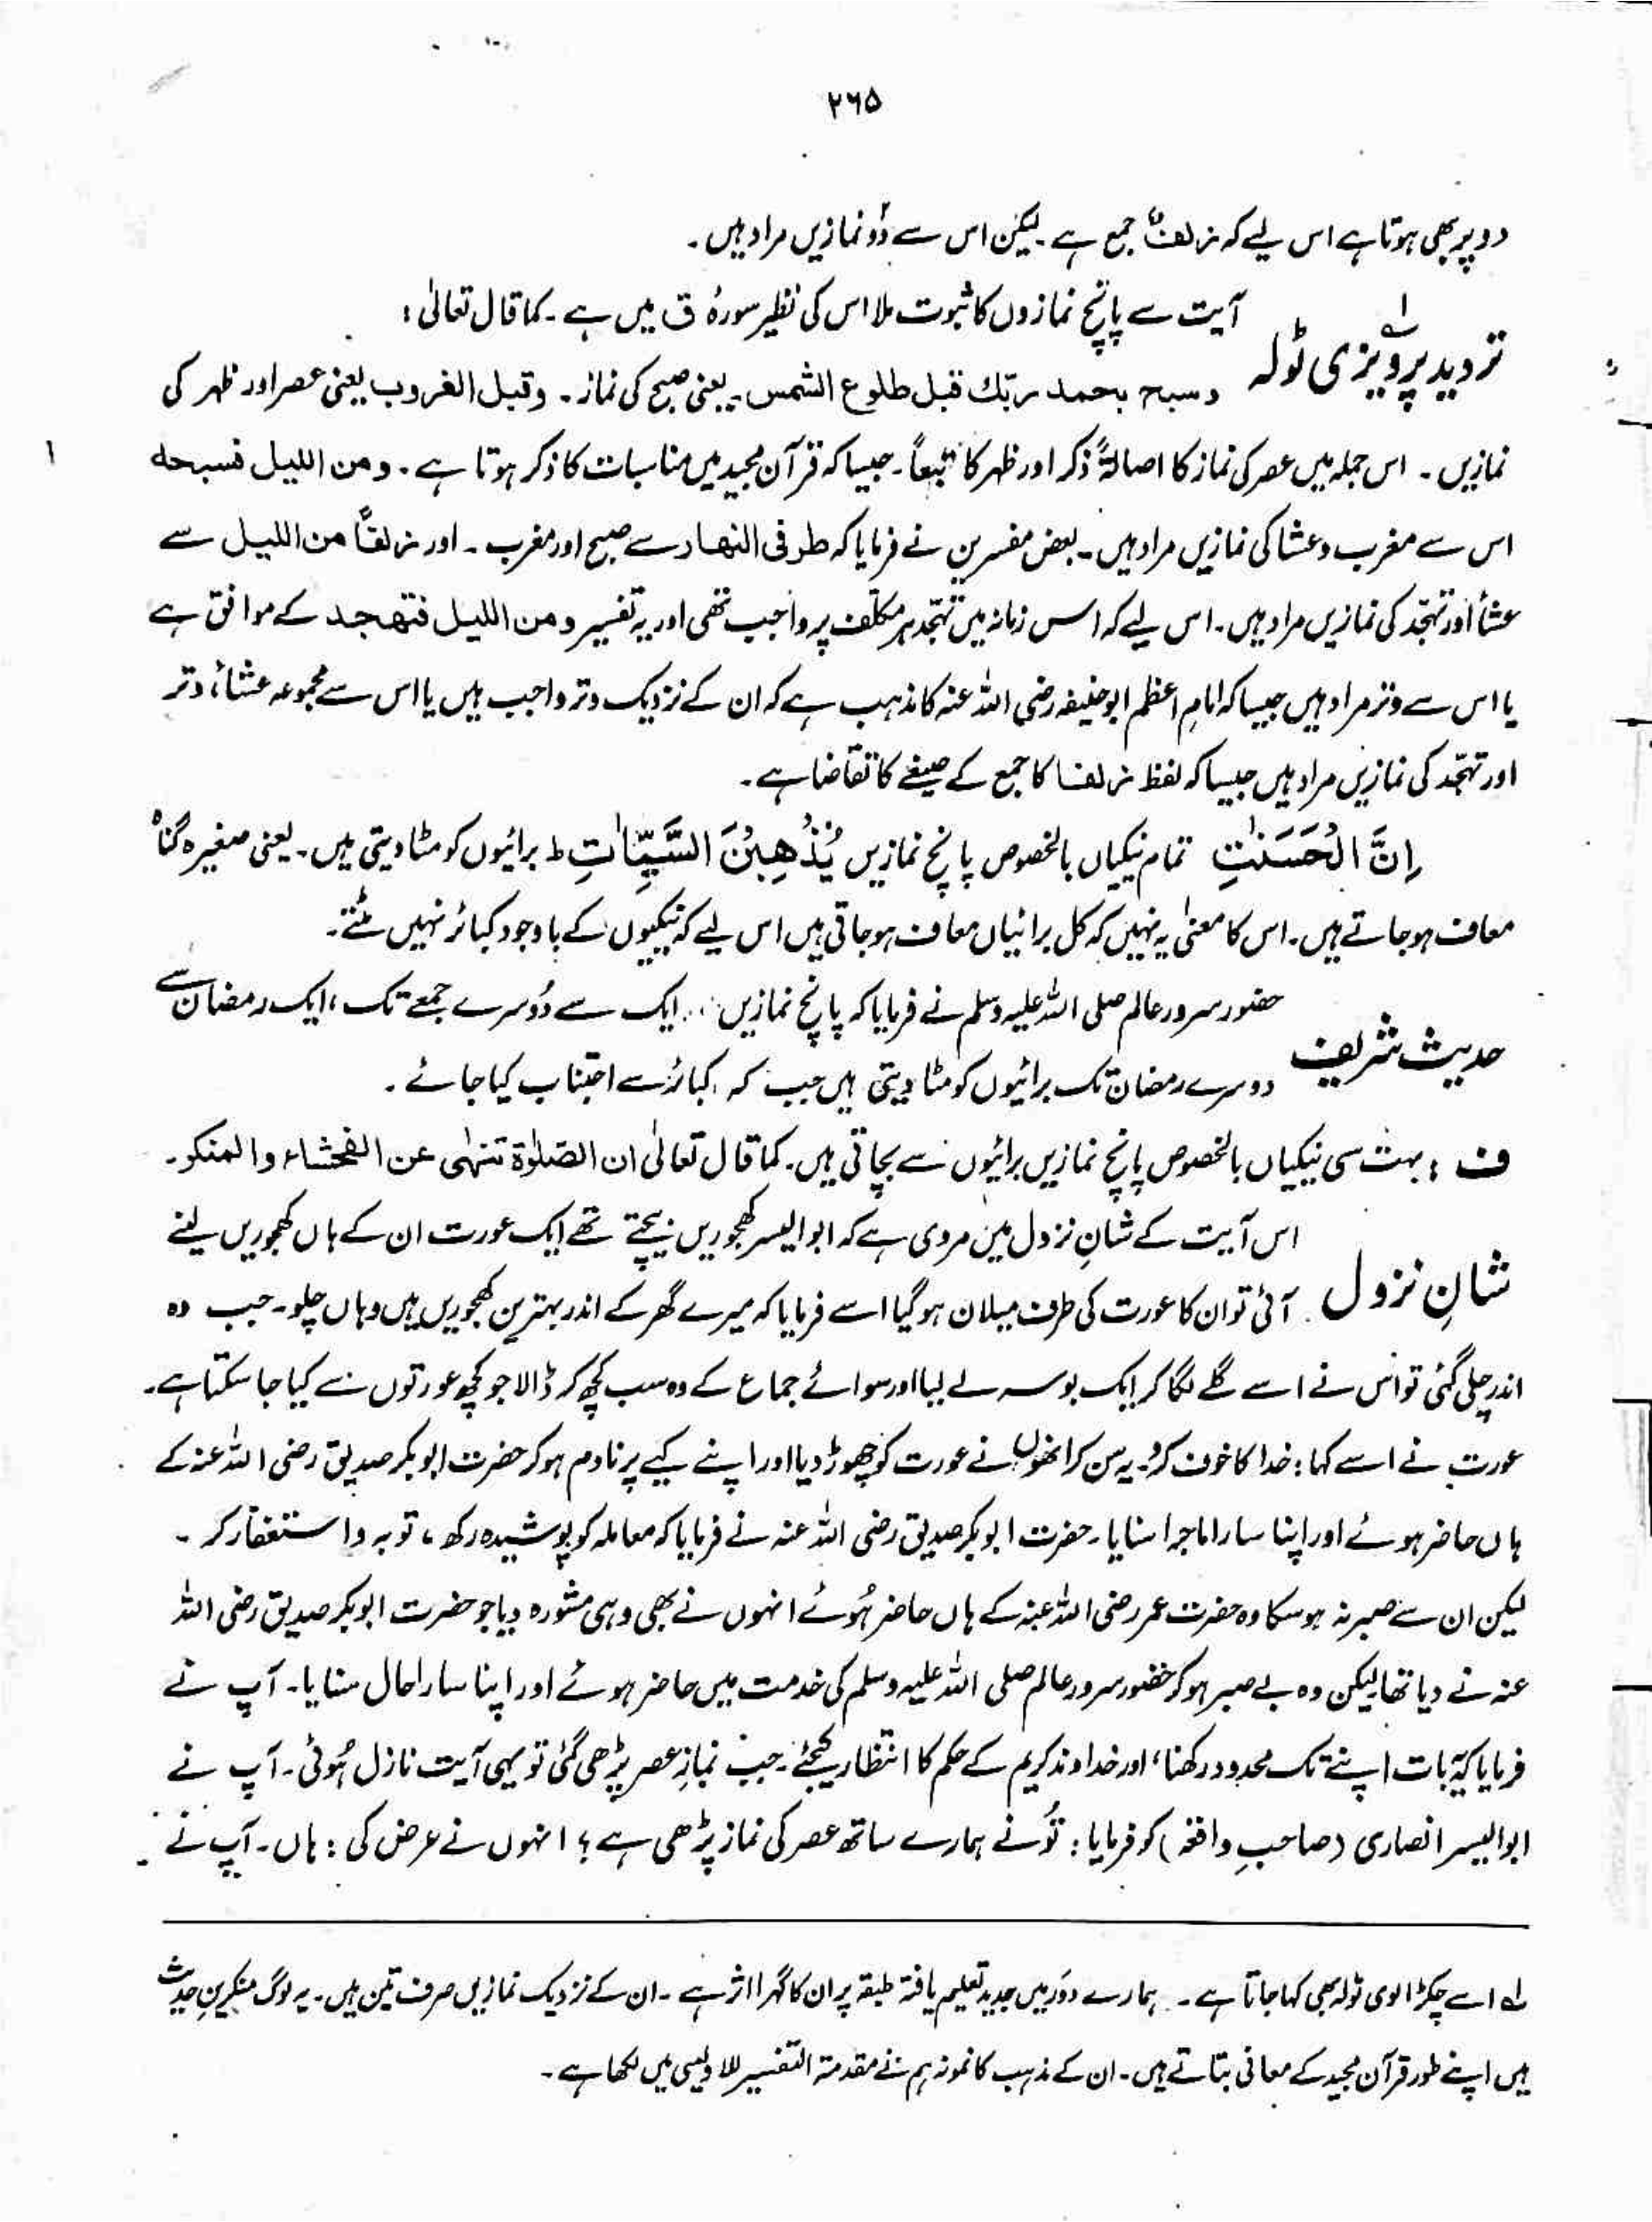 ۲۶۵
دو پر بھی ہوتا ہے اس لیے کہ زلفٌ جمع ہے۔ لیکن اس سے دُو نمازیں مراد ہیں۔
آیت سے پانچ نمازوں کا ثبوت ملا اس کی نظیر سورۂ ق میں ہے۔ کما قال تعالیٰ :
تردید پرویزی ٹولہ
وسبح بحمد ربّك قبل طلوع الشمس۔ یعنی صبح کی نماز۔ وقبل الغروب یعنی عصر اور ظہر کی
نمازیں۔ اس جملہ میں عصر کی نماز کا اصالۃً ذکر اور ظہر کا تبعاً۔ جیسا کہ قرآن مجید میں مناسبات کا ذکر ہوتا ہے۔ ومن الليل فسبحه
اس سے مغرب و عشا کی نمازیں مراد ہیں۔ بعض مفسرین نے فرمایا کہ طرفی النهار سے صبح اور مغرب۔ اور زلفًا من الليل سے
عشأ اور تہجّد کی نمازیں مراد ہیں۔ اس لیے کہ اس زمانہ میں تہجّد ہر مکلّف پر واجب تھی اور یہ تفسیر ومن الليل فتهجد کے موافق ہے
یا اس سے وتر مراد ہیں جیسا کہ امامِ اعظم ابو حنیفہ رضی اللہ عنہ کا مذہب ہے کہ ان کے نزدیک وتر واجب ہیں یا اس سے مجموعہ عشاء، وتر
اور تہجّد کی نمازیں مراد ہیں جیسا کہ لفظ زلفا کا جمع کے صیغے کا تقاضا ہے۔
اِنَّ الْحَسَنٰتِ تمام نیکیاں بالخصوص پانچ نمازیں يُذْهِبْنَ السَّيِّاٰتِ ط برائیوں کو مٹا دیتی ہیں۔ یعنی صغیرہ گناہ
معاف ہو جاتے ہیں۔ اس کا معنیٰ یہ نہیں کہ کل برائیاں معاف ہو جاتی ہیں اس لیے کہ نیکیوں کے باوجود کبائر نہیں مٹتے۔
حضور سرور عالم صلی اللہ علیہ وسلم نے فرمایا کہ پانچ نمازیں، ایک سے دُوسرے جمعے تک، ایک رمضان سے
حدیث شریف
دوسرے رمضان تک برائیوں کو مٹا دیتی ہیں جب کہ کبائر سے اجتناب کیا جائے۔
ف : بہت سی نیکیاں بالخصوص پانچ نمازیں برائیوں سے بچاتی ہیں۔ کما قال تعالیٰ ان الصّلوٰة تنهٰى عن الفحشاء والمنكر۔
اس آیت کے شانِ نزول میں مروی ہے کہ ابوالیسر کھجوریں بیچتے تھے ایک عورت ان کے ہاں کھجوریں لینے
شانِ نزول
آئی تو ان کا عورت کی طرف میلان ہوگیا اسے فرمایا کہ میرے گھر کے اندر بہترین کھجوریں ہیں وہاں چلو۔ جب وہ
اندر چلی گئی تو اس نے اسے گلے لگا کر ایک بوسہ لے لیا اور سوائے جماع کے وہ سب کچھ کر ڈالا جو کچھ عورتوں سے کیا جا سکتا ہے۔
عورت نے اسے کہا : خدا کا خوف کرو۔ یہ سن کر انھوں نے عورت کو چھوڑ دیا اور اپنے کیے پر نادم ہو کر حضرت ابوبکر صدیق رضی اللہ عنہ کے
ہاں حاضر ہوئے اور اپنا سارا ماجرا سنایا۔ حضرت ابوبکر صدیق رضی اللہ عنہ نے فرمایا کہ معاملہ کو پوشیدہ رکھ، توبہ و استغفار کر۔
لیکن ان سے صبر نہ ہو سکا وہ حضرت عمر رضی اللہ عنہ کے ہاں حاضر ہُوئے انہوں نے بھی وہی مشورہ دیا جو حضرت ابوبکر صدیق رضی اللہ
عنہ نے دیا تھا لیکن وہ بے صبر ہو کر حضور سرور عالم صلی اللہ علیہ وسلم کی خدمت میں حاضر ہوئے اور اپنا سارا حال سنایا۔ آپ نے
فرمایا کہ یہ بات اپنے تک محدود رکھنا، اور خداوند کریم کے حکم کا انتظار کیجئے۔ جب نمازِ عصر پڑھی گئی تو یہی آیت نازل ہُوئی۔ آپ نے
ابوالیسر انصاری (صاحبِ واقعہ) کو فرمایا : تُو نے ہمارے ساتھ عصر کی نماز پڑھی ہے؟ انہوں نے عرض کی : ہاں۔ آپ نے
لے اسے چکڑالوی ٹولہ بھی کہا جاتا ہے۔ ہمارے دَور میں جدید تعلیم یافتہ طبقہ پر ان کا گہرا اثر ہے۔ ان کے نزدیک نمازیں صرف تین ہیں۔ یہ لوگ منکرینِ حدیث
ہیں اپنے طور قرآن مجید کے معانی بتاتے ہیں۔ ان کے مذہب کا نمونہ ہم نے مقدمۃ التفسیر للاویسی میں لکھا ہے۔